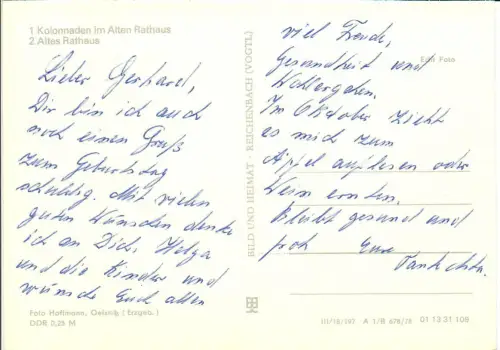 1 Kolonnaden im Alten Rathaus
2 Altes Rathaus
Lieber Gerhard,
Dir bin ich auch
noch einen Gruß
zum Geburtstag
schuldig. Mit vielen
guten Wünschen denke
ich an Dich, Helga
und die Kinder und
wünsche Euch allen
Foto Hoffmann, Oelsnitz (Erzgeb.)
DDR 0,25 M
BILD UND HEIMAT · REICHENBACH (VOGTL)
viel Freude,
Echt Foto
Gesundheit und
Wohlergehen.
Im Oktober zieht
es mich zum
Äpfel auflesen oder
Wein ernten.
Bleibt gesund und
froh Eure
III/18/397 A 1/B 678/78 01 13 31 108